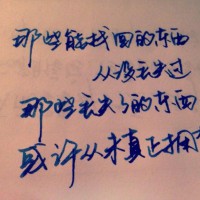 那些能找回的东西
从没丢失过
那些丢失了的东西
或许从未真正拥